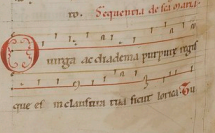 to. Sequentia de sca maria
O uirga ac diadema purpure regis
que es in clausura tua sicut lorica. Tu